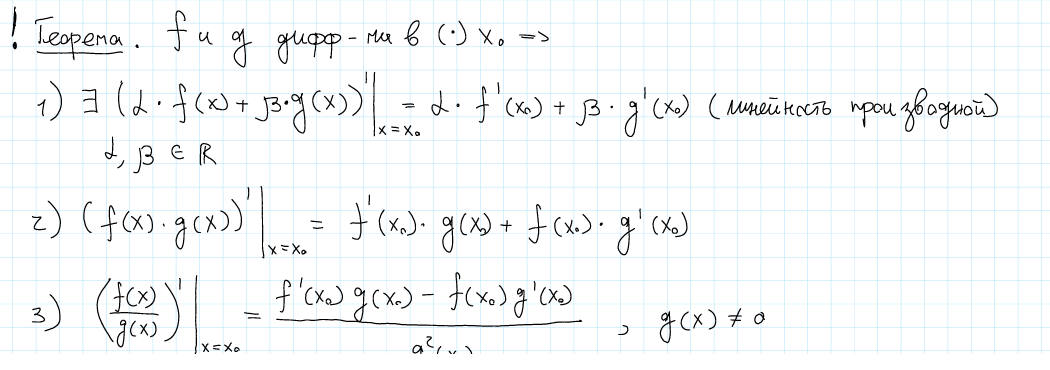 ! Теорема. f и g дифф-мы в (·) x₀ =>
1) ∃ (α · f(x) + β·g(x))'|ₓ₌ₓ₀ = α · f'(x₀) + β · g'(x₀) (линейность производной)
α, β ∈ ℝ
2) (f(x) · g(x))'|ₓ₌ₓ₀ = f'(x₀) · g(x₀) + f(x₀) · g'(x₀)
3) (f(x)/g(x))'|ₓ₌ₓ₀ = (f'(x₀) g(x₀) − f(x₀) g'(x₀))/g²(x₀) , g(x) ≠ 0